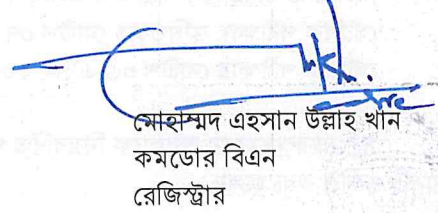 মোহাম্মদ এহসান উল্লাহ খান
কমডোর বিএন
রেজিস্ট্রার